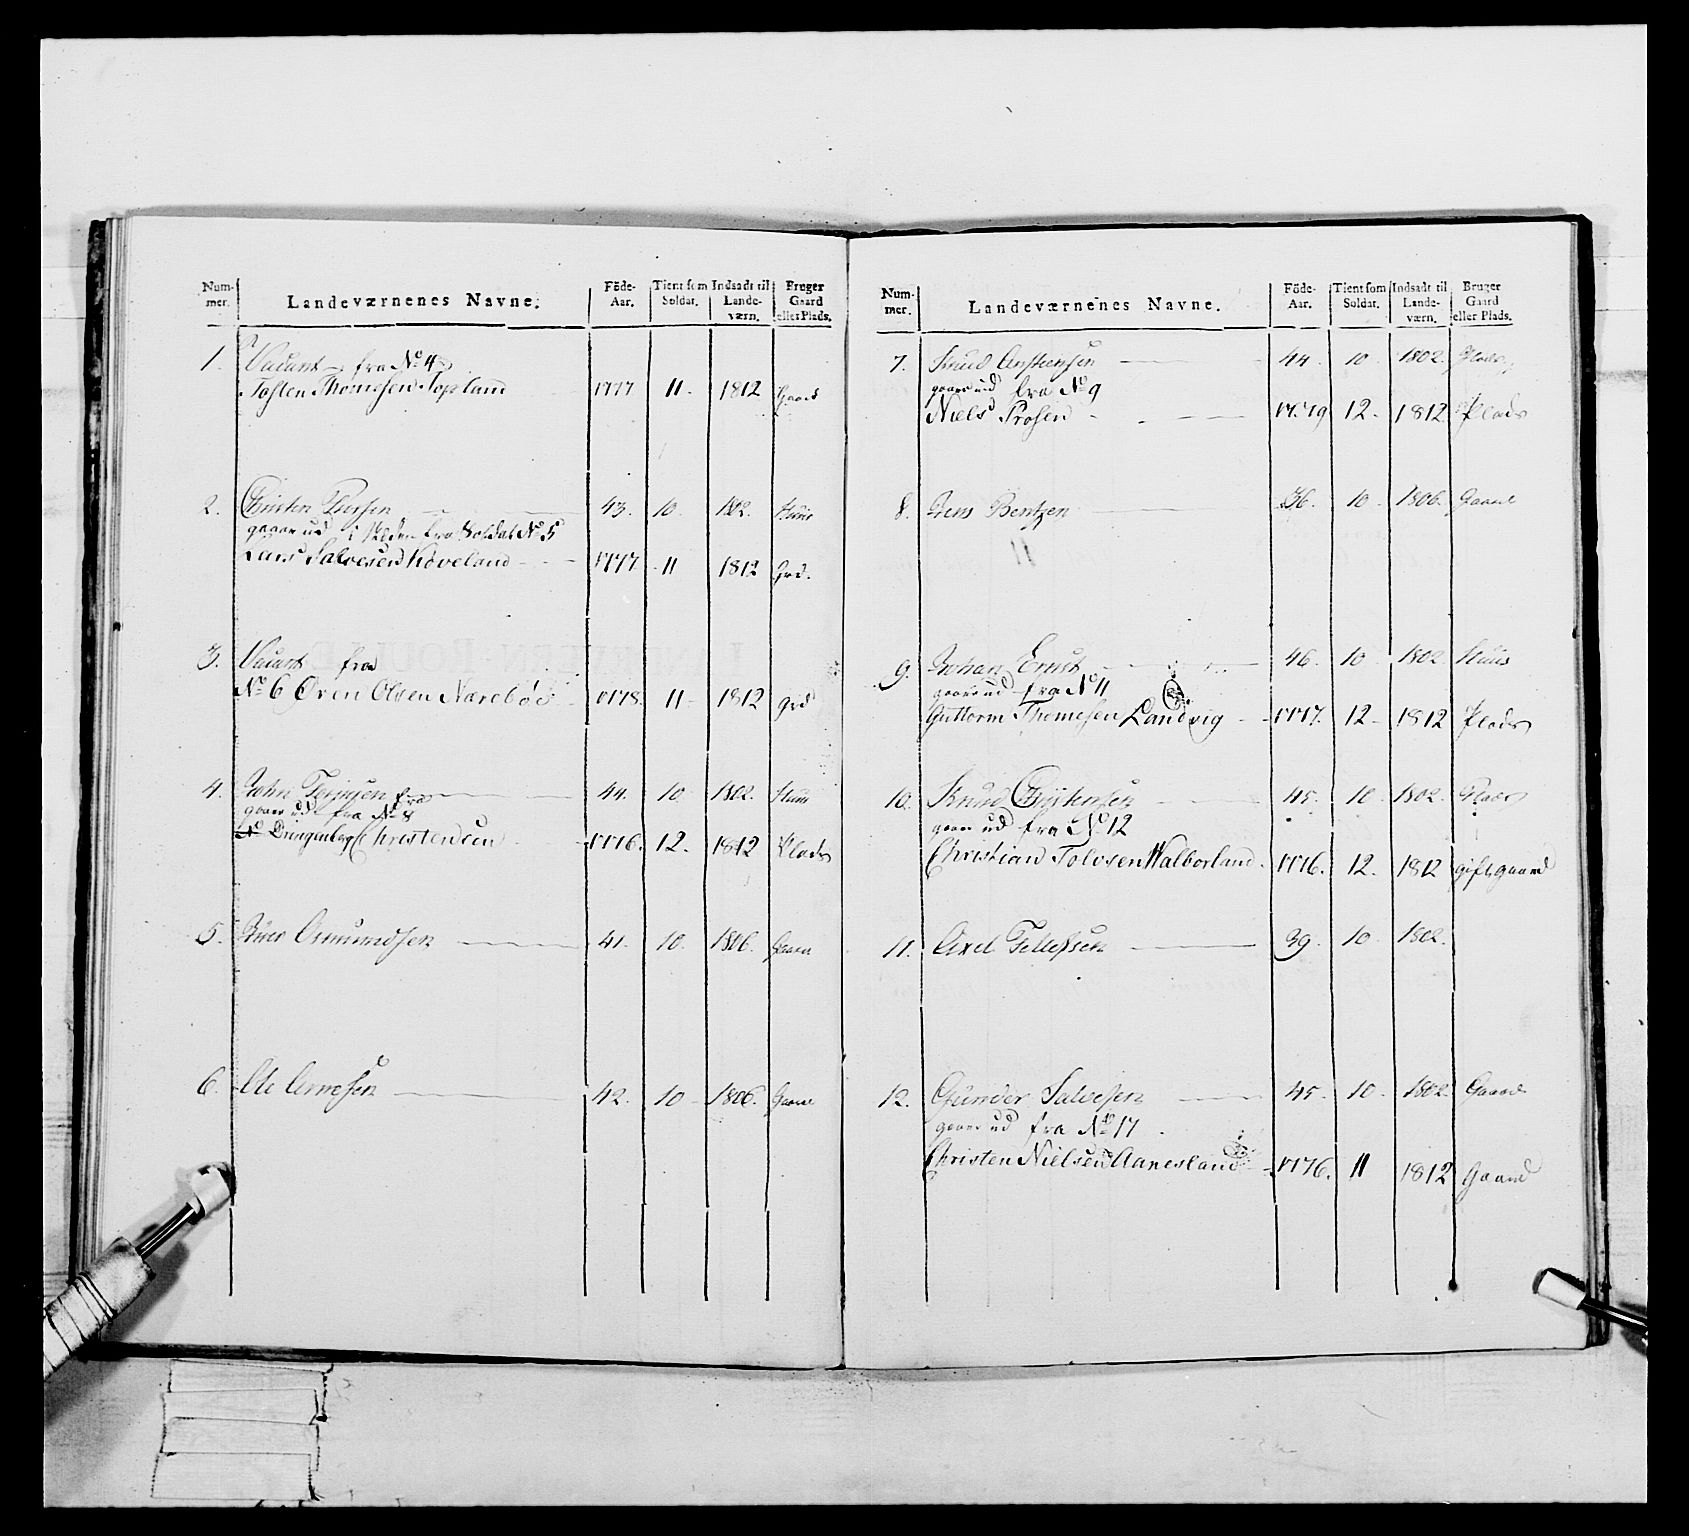 Num-mer. Landeværnenes Navne. Föde-Aar. Tient som Soldat. Indsadt til Lande-værn. Bruger Gaard eller Plads.
1. Vacant fra No 4
Tosten Thomesen Topland 1777 11 - 1812 Gaard
2. Christen Persen 43. 10 1802. Huus
gaaer ud i Steden fra Soldat No 5
Lars Salvesen Koveland 1777 11 1812 Grd.
3. Vacant fra
No 6 Oven Olsen Narebøe 1778. 11 - 1812 Grd
4. John Terjusen 44. 10 1802. Huus
gaaer ud fra No 8
Christensen 1776. 12. 1812 Plads
5. Iver Osmundsen 41. 10. 1806. Gaard
6. Ole Arnesen 42. 10 - 1806. Gaard
Num-mer. Landeværnenes Navne. Föde-Aar. Tient som Soldat. Indsadt til Lande-værn. Bruger Gaard eller Plads.
7. Knud Anstensen 44. 10 1802. Plads
gaaer ud fra No 9
Niels 1779 12. 1812 Plads
8. Jens Bentzen 36. 10 1806. Gaard
9. Johan Ernst 46. 10 1802 Huus
gaaer ud fra No 11
Guttorm Thomesen Landvig 1777. 12 - 1812 Plads
10. Knud Christensen 45. 10 1802. Plads
gaaer ud fra No 12
Christian Tolvsen Walborland 1776. 12. 1812 gift gaard
11. Axel Tellefsen 39. 10 1802.
12. Gunder Salvesen 45. 10 1802. Gaard
gaaer ud fra No 17
Christen Nielsen Aanesland 1776. 11 1812 Gaard